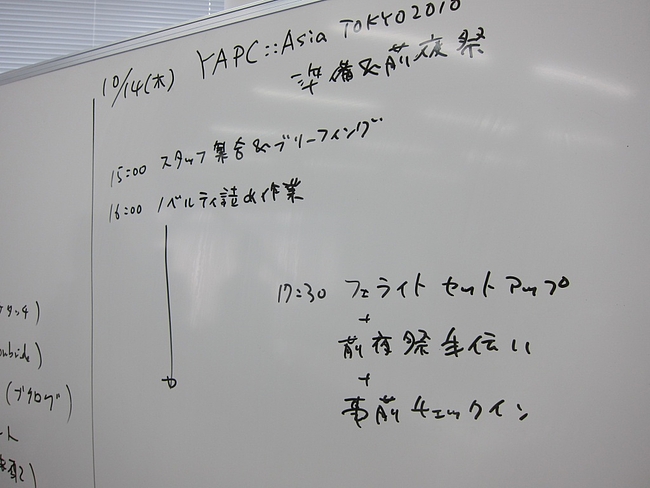 10/14(木) YAPC::Asia TOKYO2010
準備&前夜祭
15:00 スタッフ集合&ブリーフィング
16:00 ノベルティ詰め作業
17:30 フェライトセットアップ
+
前夜祭手伝い
+
事前チェックイン